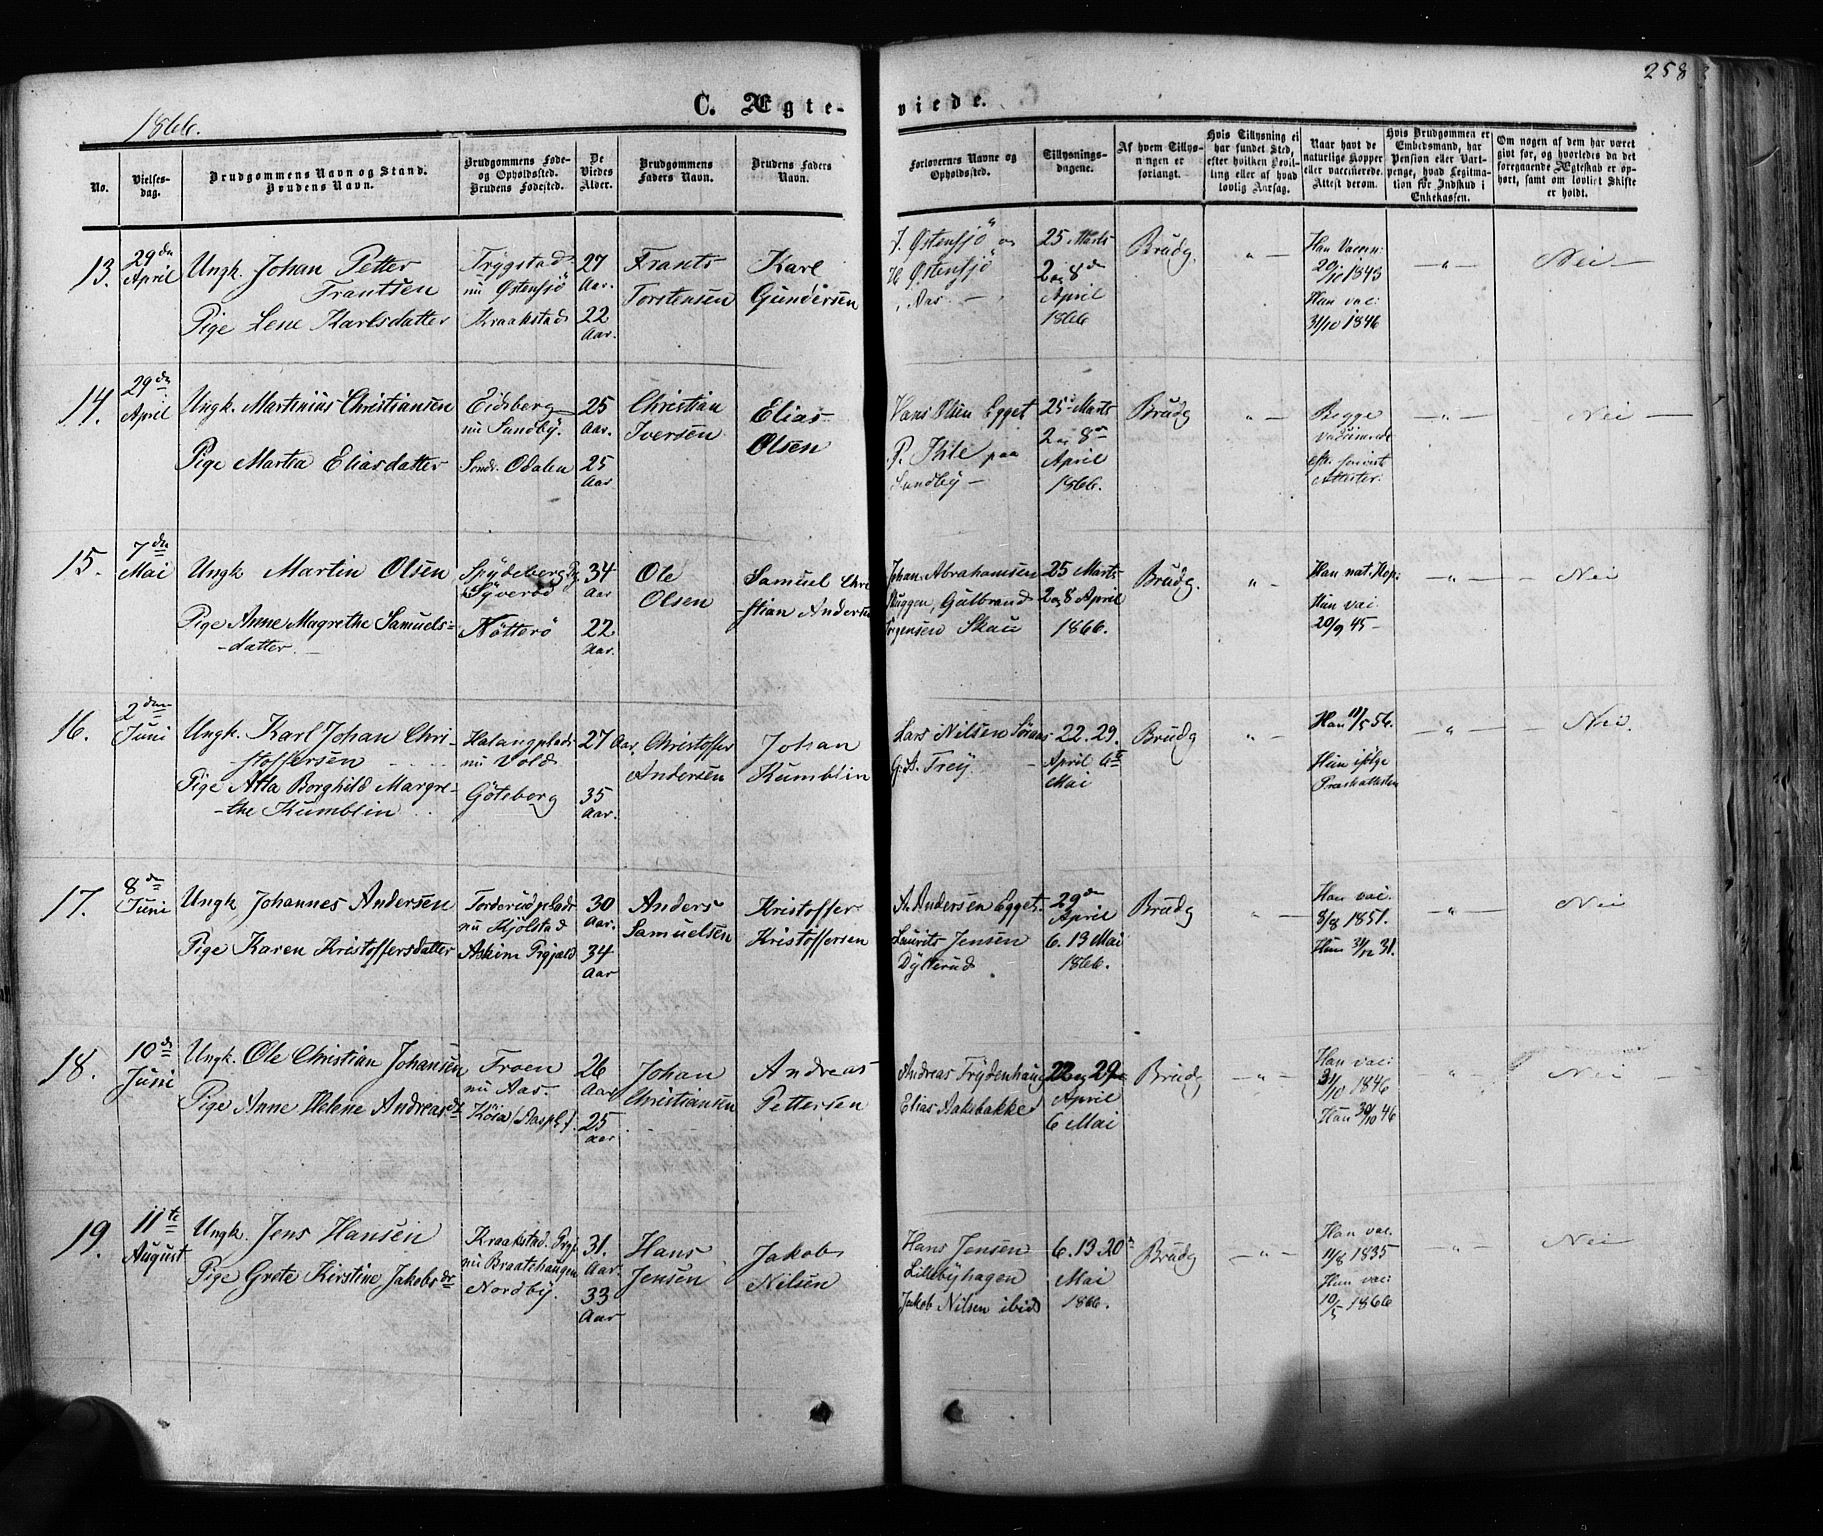 258
1866.
C. Ægteviede.
No.
Vielsesdag.
Brudgommens Navn og Stand.
Brudens Navn.
Brudgommens Føde- og Opholdssted.
Brudens Fødested.
De Viedes Alder.
Brudgommens Faders Navn.
Brudens Faders Navn.
Forlovernes Navne og Opholdsted.
Tillysningsdagene.
Af hvem Tillysningen er forlangt.
Hvis Tillysning ei har fundet Sted, efter hvilken Bevilling eller af hvad lovlig Aarsag.
Naar havt de naturlige Kopper eller vaccinerede. Attest derom.
Hvis Brudgommen er Embedsmand, har Pension eller Vartpenge, hvad Legitmation for Indskud i Enkekassen.
Om nogen af dem har været givt før, og hvorledes da det foregaaende Ægteskab er ophørt, samt om lovligt Skifte er holdt.
13. 29de April
Ungk. Johan Petter Frantsen
Pige Lene Karlsdatter
Trygstad nu Østensjö
Kraakstad
27 Aar.
22 Aar.
Frants Torstensen
Karl Gundersen
J. Østensjö og
H. Østensjö
Aas
25 Marts
2 og 8de April
1866
Brudg.
Han Vaccn:
20/10 1843
Hun vac:
31/10 1846
Nei
14. 29de April
Ungk. Martinius Christiansen
Pige Martea Eliasdatter
Eidsberg nu Sundby.
Sondr. Odalen
25 Aar.
25 Aar
Christian Iversen
Elias Olsen
Hans Olsen Egget
P. Ihle paa Sundby
25 Marts
2 og 8de April
1866.
Brudg
Begge
vaccinerede
Attester.
Nei
15. 7de Mai
Ungk Martin Olsen
Pige Anne Magrethe Samuelsdatter
Spydeberg
Syverød
Nötterö
34 Aar
22 Aar.
Ole Olsen
Samuel Christian Andersen
Johan Abrahamsen
Skuggen, Gulbrand
Jørgensen Skau
25 Marts
2 og 8 April
1866.
Brudg.
Han nat. Kop:
Hun vai.
20/9 45
Nei
16. 2den Juni
Ungk. Karl Johan Christoffersen
Pige Atta Borghild Margrethe Kumblin
nu Vold
Göteborg
27 Aar.
35 Aar.
Christoffer Andersen
Johan Kumblin
Lars Nilsen
G. A. Frey
22. 29. April 6te Mai
Brudg
Han 11/5 56.
Hun ifølge
Præsteattesten
Nei.
17. 8de Juni
Ungk Johannes Andersen
Pige Karen Kristoffersdatter
Torderudpladsn
nu Kjölstad
Askim Prgjæld
30 Aar.
34 Aar
Anders Samuelsen
Kristoffer Kristoffersen
A. Andersen Egget.
Laurits Jensen
Dysterud
29de April
6. 13 Mai
1866.
Brudg
Han vai.
8/8 1851.
Hun 31/12 31.
Nei
18. 10de Juni
Ungk. Ole Christian Johansen
Pige Anne Helene Andreasdt
Froen nu Aas.
26 Aar
25 Aar
Johan Christiansen
Andreas Pettersen
Andreas Frydenhaug
Elias Aaksbakke
22 og 29de April
6 Mai
Brudg
Han vac:
31/10 1846
Hun 30/10 46
Nei
19. 11te August
Ungk. Jens Hansen
Pige Grete Kirstine Jakobsdr
Kraakstad. Prgj
nu Braatehaugen
Nordby.
31. Aar.
33 Aar
Hans Jensen
Jakob Nilsen
Hans Jensen
Lillebyhagen
Jakob Nilsen ibid
6. 13 20
Mai
1866.
Brudg
Han vac.
11/8 1835
Hun vac:
10/5 1866
Nei